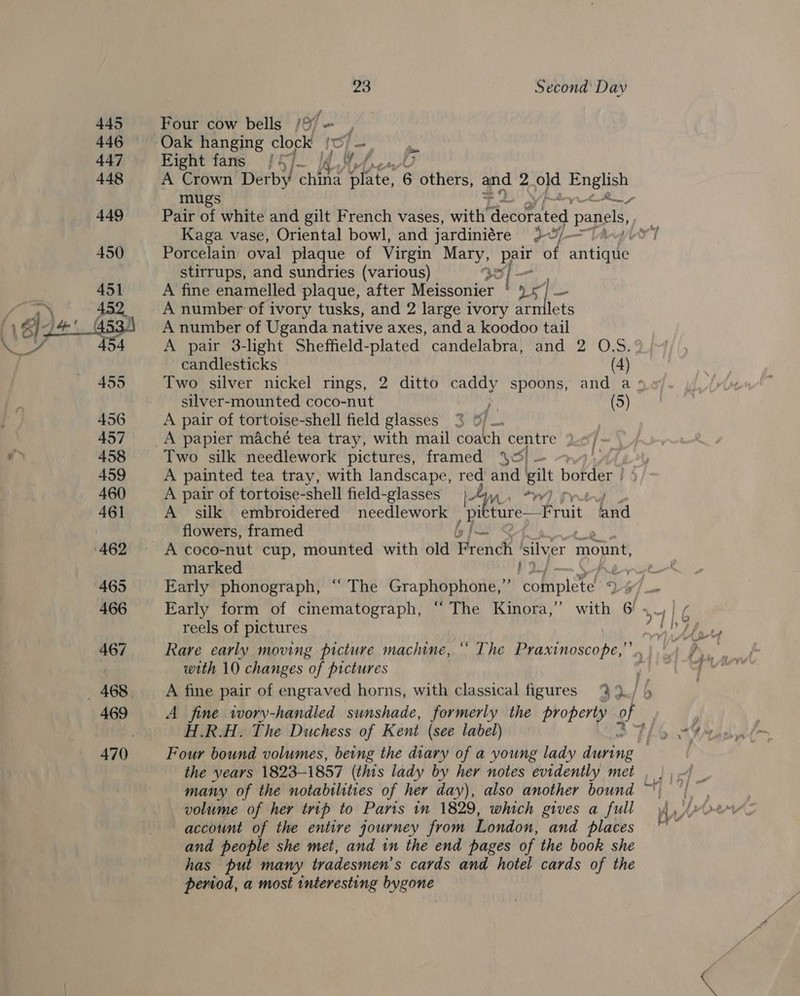 23 Second Day
445 Four cow bells 10/-
446 Oak hanging clock 10/-
447 Eight fans 15/-
448 A Crown Derby china plate, 6 others, and 2 old English
mugs
449 Pair of white and gilt French vases, with decorated panels,
Kaga vase, Oriental bowl, and jardiniére
450 Porcelain oval plaque of Virgin Mary, pair of antique
stirrups, and sundries (various)
451 A fine enamelled plaque, after Meissonier
452 A number of ivory tusks, and 2 large ivory armlets
453 A number of Uganda native axes, and a koodoo tail
454 A pair 3-light Sheffield-plated candelabra, and 2 O.S.
candlesticks (4)
455 Two silver nickel rings, 2 ditto caddy spoons, and a
silver-mounted coco-nut (5)
456 A pair of tortoise-shell field glasses
457 A papier mâché tea tray, with mail coach centre
458 Two silk needlework pictures, framed
459 A painted tea tray, with landscape, red and gilt border
460 A pair of tortoise-shell field-glasses
461 A silk embroidered needlework picture—Fruit and
flowers, framed
462 A coco-nut cup, mounted with old French silver mount,
marked
465 Early phonograph, “The Graphophone,” complete
466 Early form of cinematograph, “The Kinora,” with 6
reels of pictures
467 Rare early moving picture machine, “The Praxinoscope,”
with 10 changes of pictures
468 A fine pair of engraved horns, with classical figures
469 A fine ivory-handled sunshade, formerly the property of
H.R.H. The Duchess of Kent (see label)
470 Four bound volumes, being the diary of a young lady during
the years 1823–1857 (this lady by her notes evidently met
many of the notabilities of her day), also another bound
volume of her trip to Paris in 1829, which gives a full
account of the entire journey from London, and places
and people she met, and in the end pages of the book she
has put many tradesmen's cards and hotel cards of the
period, a most interesting bygone